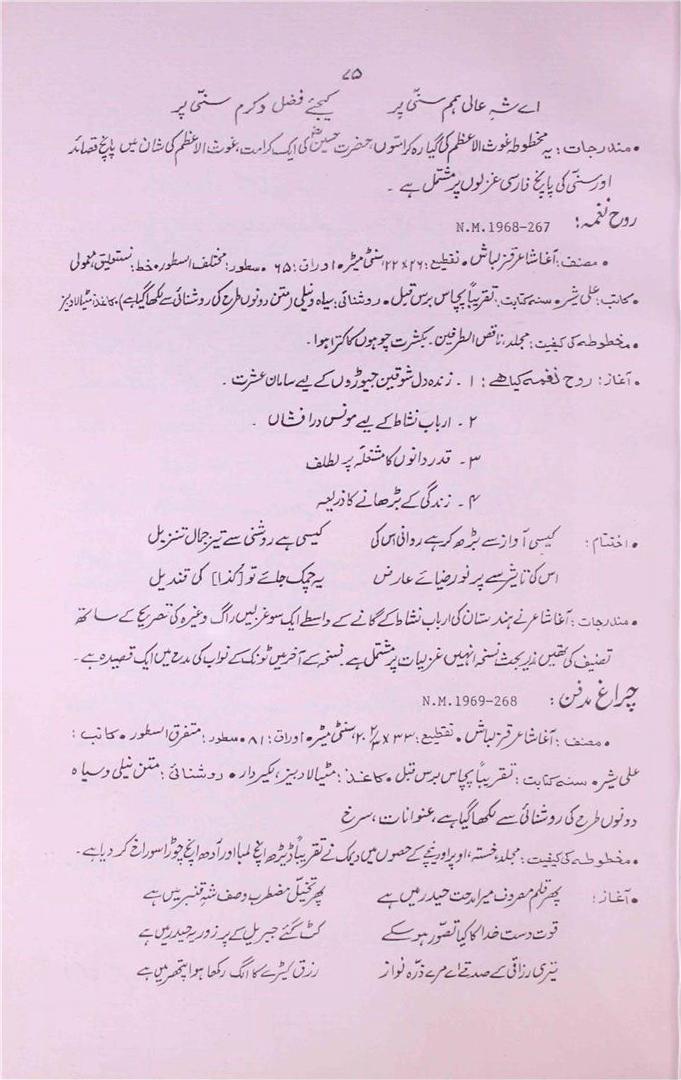 ۷۵
اے شہِ عالی ہم سنّی پر کیجئے فضل و کرم سنّی پر
• مندرجات: یہ مخطوطہ غوث الاعظم کی گیارہ کرامتوں، حضرت حسینؓ کی ایک کرامت، غوث الاعظم کی شان میں پانچ قصائد
اور سنّی کی پانچ فارسی غزلوں پر مشتمل ہے ۔
روح نغمہ: N.M.1968-267
• مصنف: آغا شاعر قزلباش • تقطیع: ۲۶×۲۲ سنٹی میٹر • اوراق: ۶۵ • سطور: مختلف السطور • خط: نستعلیق، معمولی
• کاتب: علی شیر • سنہ کتابت: تقریباً پچاس برس قبل • روشنائی: سیاہ و نیلی (متن دونوں طرح کی روشنائی سے لکھا گیا ہے) • کاغذ: مٹیالا دبیز
• مخطوطہ کی کیفیت: مجلد، ناقص الطرفین ۔ بکثرت چوہوں کا کترا ہوا ۔
• آغاز: روح نغمہ کیا ھے: ۱ ۔ زندہ دل شوقین جیوڑوں کے لیے سامان عشرت ۔
۲ ۔ ارباب نشاط کے لیے مونس در افشاں ۔
۳ ۔ قدردانوں کا مشغلہ پر لطف
۴ ۔ زندگی کے بڑھانے کا ذریعہ
• اختتام: کیسی آواز سے بڑھ کر ہے روانی اس کی کیسی ہے روشنی سے تیز جمال تنزیل
اس کی تابش سے پر نور ضیائے عارض یہ چمک جائے تو [کذا] کی قندیل
• مندرجات: آغا شاعر نے ہندستان کی ارباب نشاط کے گانے کے واسطے ایک سو غزلیں راگ وغیرہ کی تصریح کے ساتھ
تصنیف کی تھیں زیر بحث نسخہ انہیں غزلیات پر مشتمل ہے ۔ نسخہ کے آخر میں ٹونک کے نواب کی مدح میں ایک قصیدہ ہے ۔
چراغ مدفن: N.M.1969-268
• مصنف: آغا شاعر قزلباش • تقطیع: ۳۳× سنٹی میٹر • اوراق: ۸۱ • سطور: متفرق السطور • کاتب:
علی شیر • سنہ کتابت: تقریباً پچاس برس قبل • کاغذ: مٹیالا دبیز، لکیردار • روشنائی: متن نیلی و سیاہ
دونوں طرح کی روشنائی سے لکھا گیا ہے، عنوانات، سرخ
• مخطوطہ کی کیفیت: مجلد، خستہ، اوپر اور نیچے کے حصوں میں دیمک نے تقریباً ڈیڑھ انچ لمبا اور آدھ انچ چوڑا سوراخ کر دیا ہے ۔
• آغاز: پھر قلم مصروف میرا مدحت حیدر میں ہے پھر تخیّل مضطرب وصف شہِ قنبر میں ہے
قوت دست خدا کا کیا تصوّر ہو سکے کٹ گئے جبریل کے پر زور یہ حیدر میں ہے
تیری رزاقی کے صدقے اے مرے ذرّہ نواز رزق کیڑے کا الگ رکھا ہوا پتھر میں ہے